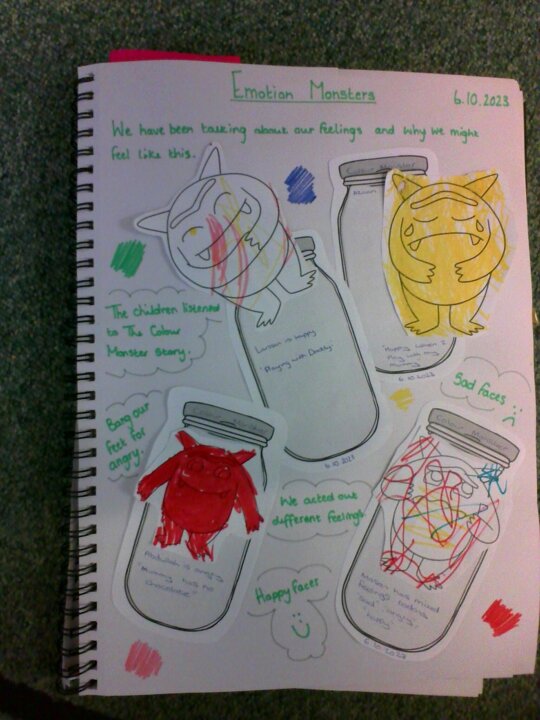 Emotion Monsters
6.10.2023
We have been talking about our feelings and why we might
feel like this.
Colour Monster
The children listened
to The Colour
Monster story.
is happy
"Playing with Daddy"
6.10.2023
"Happy when I
Play with my
Mummy
6.10.2023
Sad faces
Bang our
feet for
angry.
Colour Monster
We acted out
different feelings
Abdullah is angry
"Mummy has no
chocolate"
Happy faces
has mixed
feelings
sad, "angry",
6.10.2023